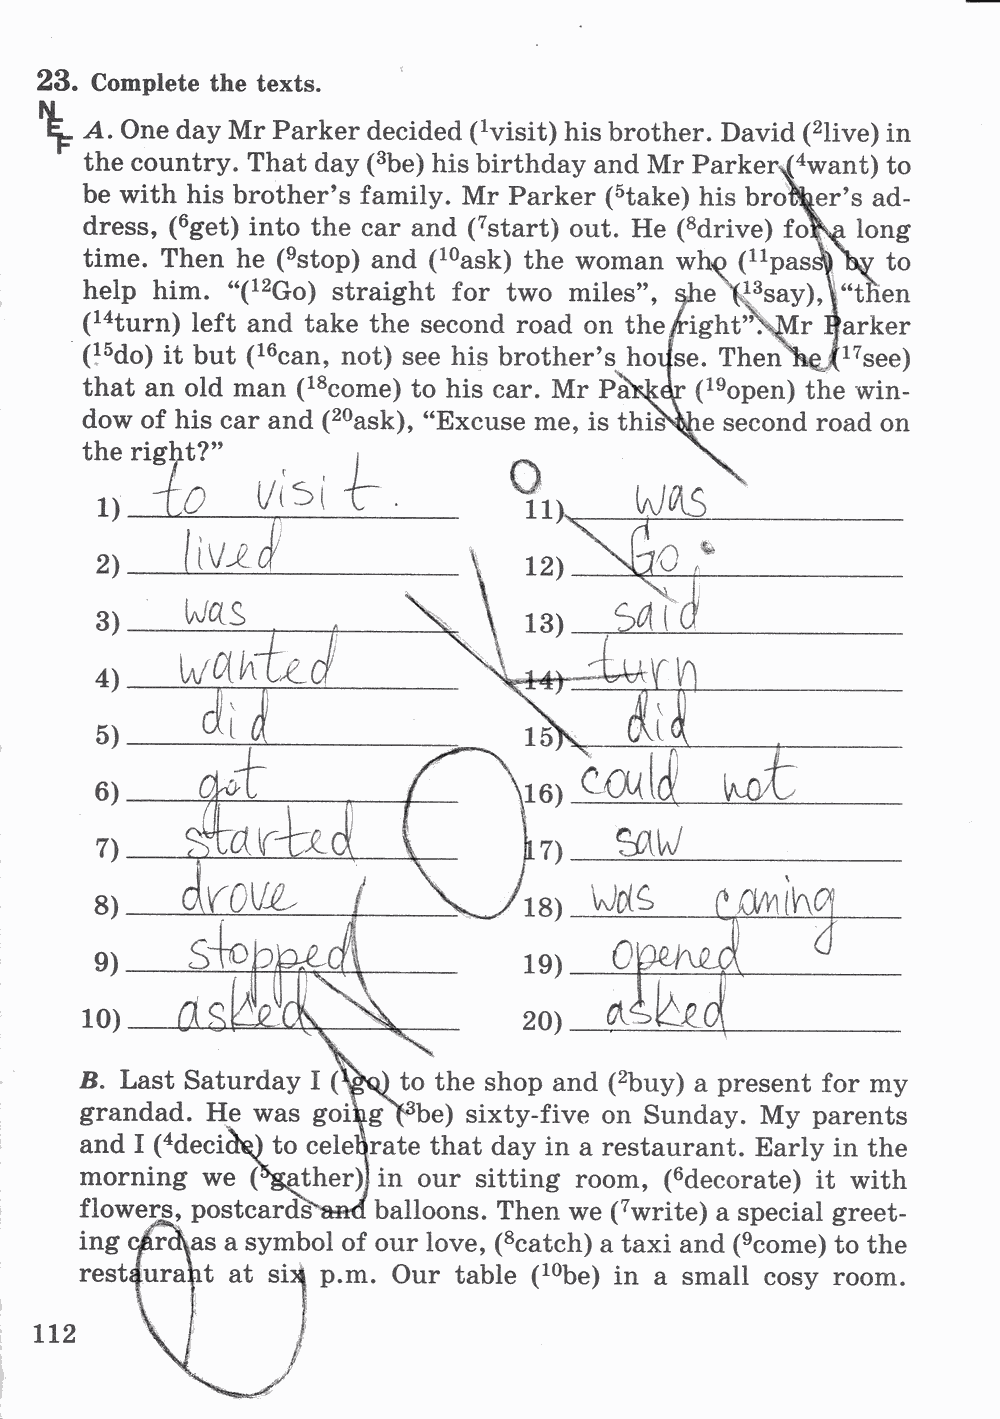 23. Complete the texts.
NEF
A. One day Mr Parker decided (¹visit) his brother. David (²live) in
the country. That day (³be) his birthday and Mr Parker (⁴want) to
be with his brother's family. Mr Parker (⁵take) his brother's ad-
dress, (⁶get) into the car and (⁷start) out. He (⁸drive) for a long
time. Then he (⁹stop) and (¹⁰ask) the woman who (¹¹pass) by to
help him. “(¹²Go) straight for two miles”, she (¹³say), “then
(¹⁴turn) left and take the second road on the right”. Mr Parker
(¹⁵do) it but (¹⁶can, not) see his brother's house. Then he (¹⁷see)
that an old man (¹⁸come) to his car. Mr Parker (¹⁹open) the win-
dow of his car and (²⁰ask), “Excuse me, is this the second road on
the right?”
1) to visit.
2) lived
3) was
4) wanted
5) did
6) got
7) started
8) drove
9) stopped
10) asked
11) was
12) Go.
13) said
14) turn
15) did
16) could not
17) saw
18) was coming
19) opened
20) asked
B. Last Saturday I (¹go) to the shop and (²buy) a present for my
grandad. He was going (³be) sixty-five on Sunday. My parents
and I (⁴decide) to celebrate that day in a restaurant. Early in the
morning we (⁵gather) in our sitting room, (⁶decorate) it with
flowers, postcards and balloons. Then we (⁷write) a special greet-
ing card as a symbol of our love, (⁸catch) a taxi and (⁹come) to the
restaurant at six p.m. Our table (¹⁰be) in a small cosy room.
112